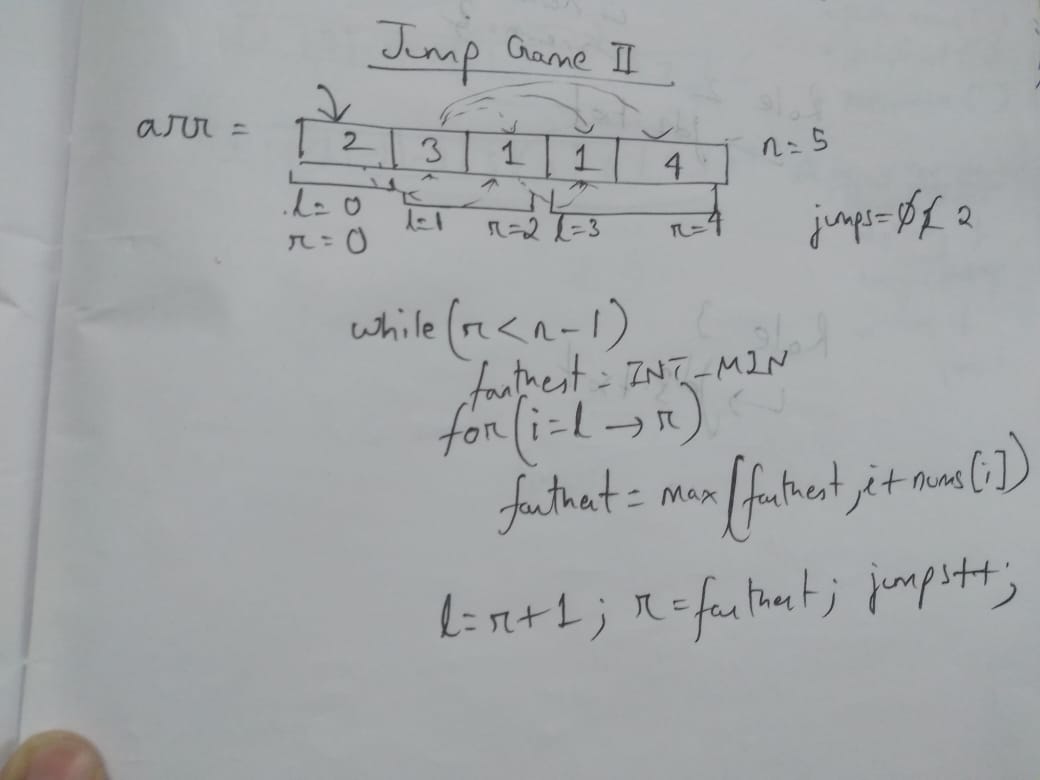 Jump Game II
arr = 2 3 1 1 4 n=5
l=0 l=1 r=2 l=3 r=4 jumps=0 1 2
r=0
while(r<n-1)
farthest = INT_MIN
for(i=l→r)
farthest = max(farthest, i+nums[i])
l=r+1; r=farthest; jumps++;